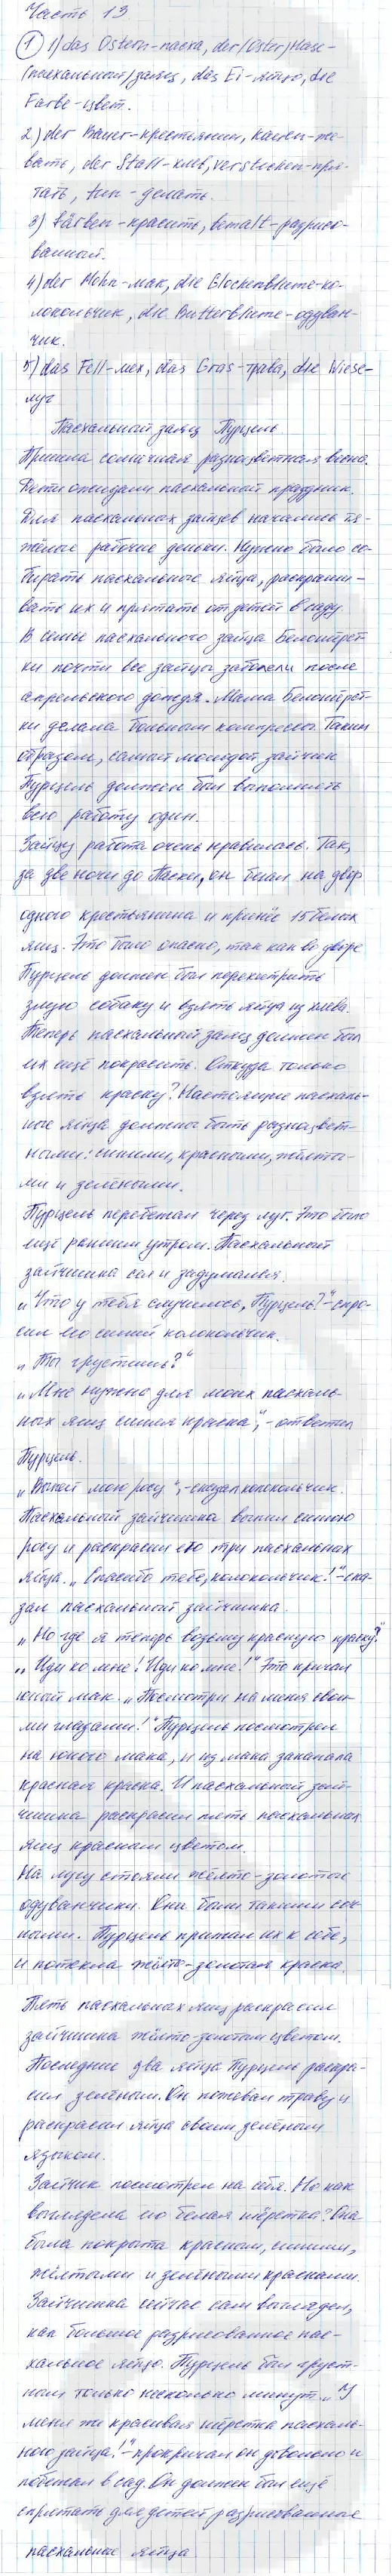 Часть 13
1 1) das Ostern-пасха, der (Oster) Hase-
(пасхальный) заяц, das Ei-яйцо, die
Farbe-цвет.
2) der Bauer-крестьянин, kauen-же-
вать, der Stall-хлев, verstecken-пря-
тать, tun-делать.
3) färben-красить, bemalt-разрисо-
ванный.
4) der Mohn-мак, die Glockenblume-ко-
локольчик, die Butterblume-одуван-
чик.
5) das Fell-мех, das Gras-трава, die Wiese-
луг
Пасхальный заяц Пурцель.
Пришла солнечная разноцветная весна.
Дети ожидали пасхальный праздник.
Для пасхальных зайцев начались тя-
жёлые рабочие деньки. Нужно было со-
бирать пасхальные яйца, раскраши-
вать их и прятать от детей в саду.
В семье пасхального зайца Белошёрст-
ки почти все зайцы заболели после
апрельского дождя. Мама Белошёрст-
ки делала больным компрессы. Таким
образом, самый молодой зайчик
Пурцель должен был выполнить
всю работу один.
Зайцу работа очень нравилась. Так,
за две ночи до Пасхи, он бегал на двор
одного крестьянина и принёс 15 белых
яиц. Это было опасно, так как во дворе
Пурцель должен был перехитрить
злую собаку и взять яйца из хлева.
Теперь пасхальный заяц должен был
их ещё покрасить. Откуда только
взять краску? Настоящие пасхаль-
ные яйца должны быть разноцвет-
ными: синими, красными, жёлты-
ми и зелёными.
Пурцель перебежал через луг. Это было
ещё ранним утром. Пасхальный
зайчишка сел и задумался.
„Что у тебя случилось, Пурцель?"-спро-
сил его синий колокольчик.
„Ты грустишь?"
„Мне нужна для моих пасхаль-
ных яиц синяя краска",-ответил
Пурцель.
„Выпей мою росу",-сказал колокольчик.
Пасхальный зайчишка выпил синюю
росу и раскрасил ею три пасхальных
яйца. „Спасибо тебе, колокольчик!"-ска-
зал пасхальный зайчишка.
„Но где я теперь возьму красную краску?"
„Иди ко мне! Иди ко мне!" Это кричал
юный мак. „Посмотри на меня свои-
ми глазами!" Пурцель посмотрел
на юного мака, и из мака закапала
красная краска. И пасхальный зай-
чишка раскрасил пять пасхальных
яиц красным цветом.
На лугу стояли жёлто-золотые
одуванчики. Они были такими соч-
ными. Пурцель прижал их к себе,
и потекла жёлто-золотая краска.
Пять пасхальных яиц раскрасил
зайчишка жёлто-золотым цветом.
Последние два яйца Пурцель раскра-
сил зелёным. Он пожевал траву и
раскрасил яйца своим зелёным
языком.
Зайчик посмотрел на себя. Но как
выглядела его белая шёрстка? Она
была покрыта красным, синим,
жёлтыми и зелёными красками.
Зайчишка сейчас сам выглядел,
как большое разрисованное пас-
хальное яйцо. Пурцель был груст-
ным только несколько минут. „У
меня же красивая шёрстка пасхаль-
ного зайца!"-прокричал он довольно и
побежал в сад. Он должен был ещё
спрятать для детей разрисованные
пасхальные яйца.